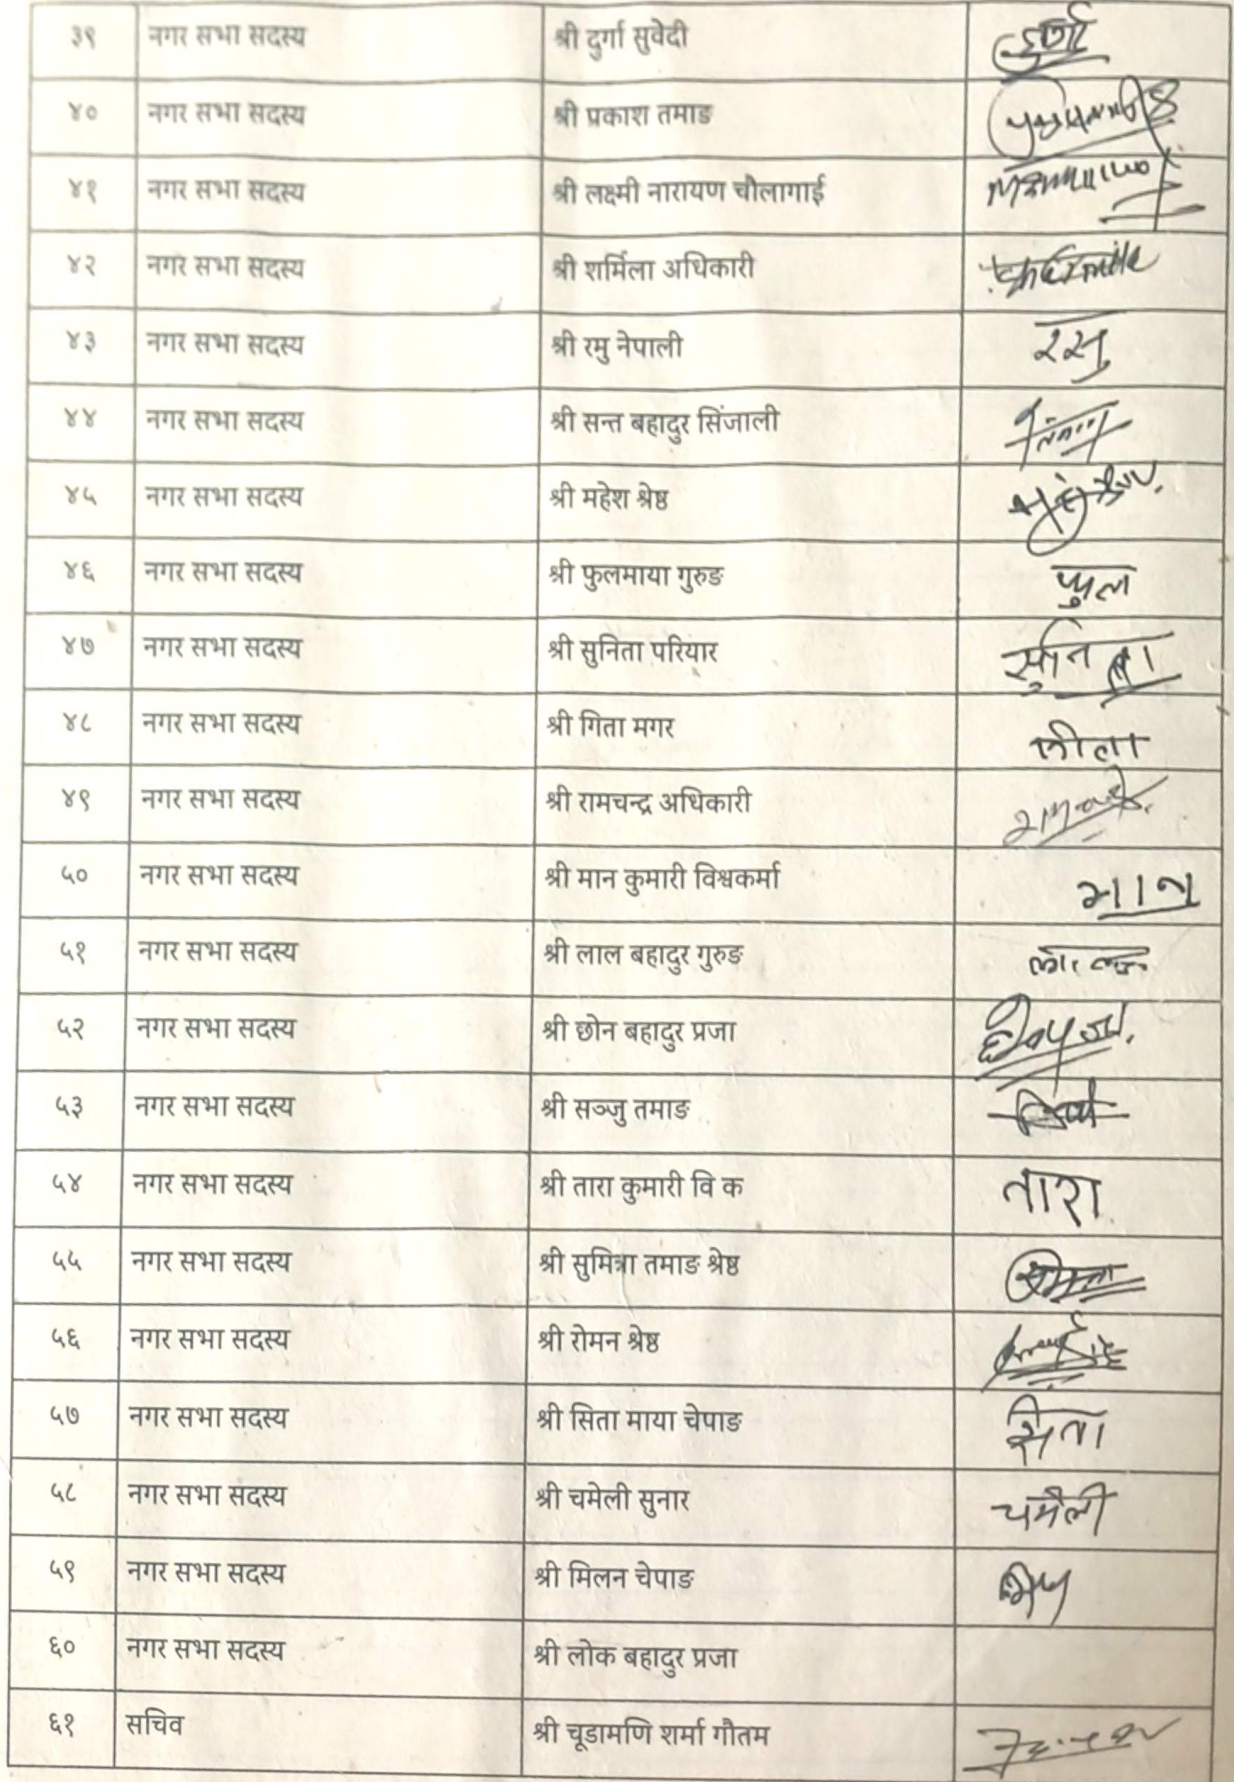 ३९ नगर सभा सदस्य श्री दुर्गा सुवेदी दुर्गा
४० नगर सभा सदस्य श्री प्रकाश तमाङ
४१ नगर सभा सदस्य श्री लक्ष्मी नारायण चौलागाई
४२ नगर सभा सदस्य श्री शर्मिला अधिकारी
४३ नगर सभा सदस्य श्री रमु नेपाली रमु
४४ नगर सभा सदस्य श्री सन्त बहादुर सिंजाली
४५ नगर सभा सदस्य श्री महेश श्रेष्ठ
४६ नगर सभा सदस्य श्री फुलमाया गुरुङ फुल
४७ नगर सभा सदस्य श्री सुनिता परियार सुनिता
४८ नगर सभा सदस्य श्री गिता मगर
४९ नगर सभा सदस्य श्री रामचन्द्र अधिकारी
५० नगर सभा सदस्य श्री मान कुमारी विश्वकर्मा मान
५१ नगर सभा सदस्य श्री लाल बहादुर गुरुङ
५२ नगर सभा सदस्य श्री छोन बहादुर प्रजा
५३ नगर सभा सदस्य श्री सञ्जु तमाङ
५४ नगर सभा सदस्य श्री तारा कुमारी वि क तारा
५५ नगर सभा सदस्य श्री सुमित्रा तमाङ श्रेष्ठ
५६ नगर सभा सदस्य श्री रोमन श्रेष्ठ
५७ नगर सभा सदस्य श्री सिता माया चेपाङ सिता
५८ नगर सभा सदस्य श्री चमेली सुनार चमेली
५९ नगर सभा सदस्य श्री मिलन चेपाङ
६० नगर सभा सदस्य श्री लोक बहादुर प्रजा
६१ सचिव श्री चूडामणि शर्मा गौतम